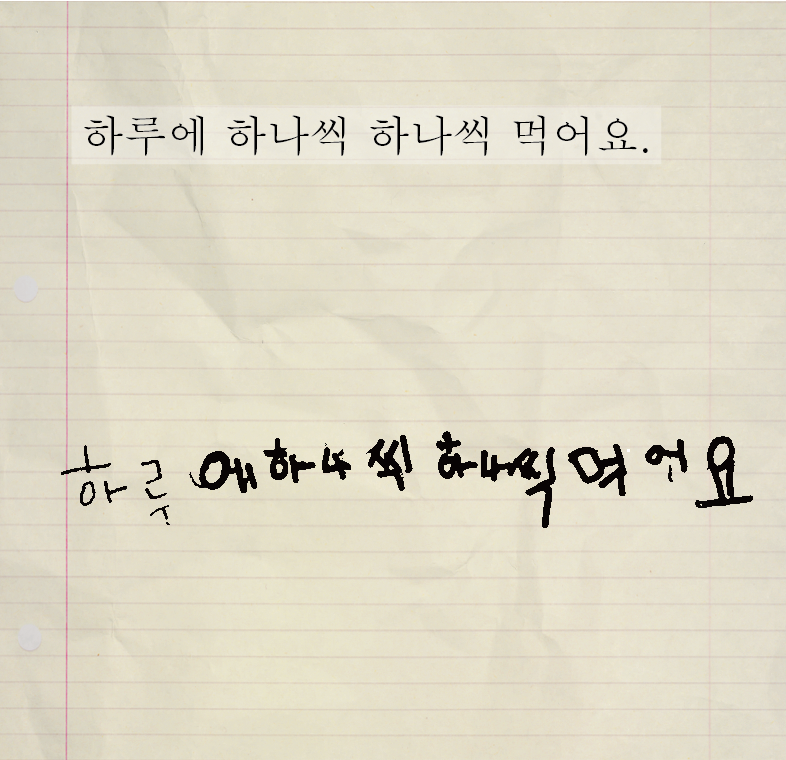 하루에 하나씩 하나씩 먹어요.
하루에 하나씩 하나씩 먹어요